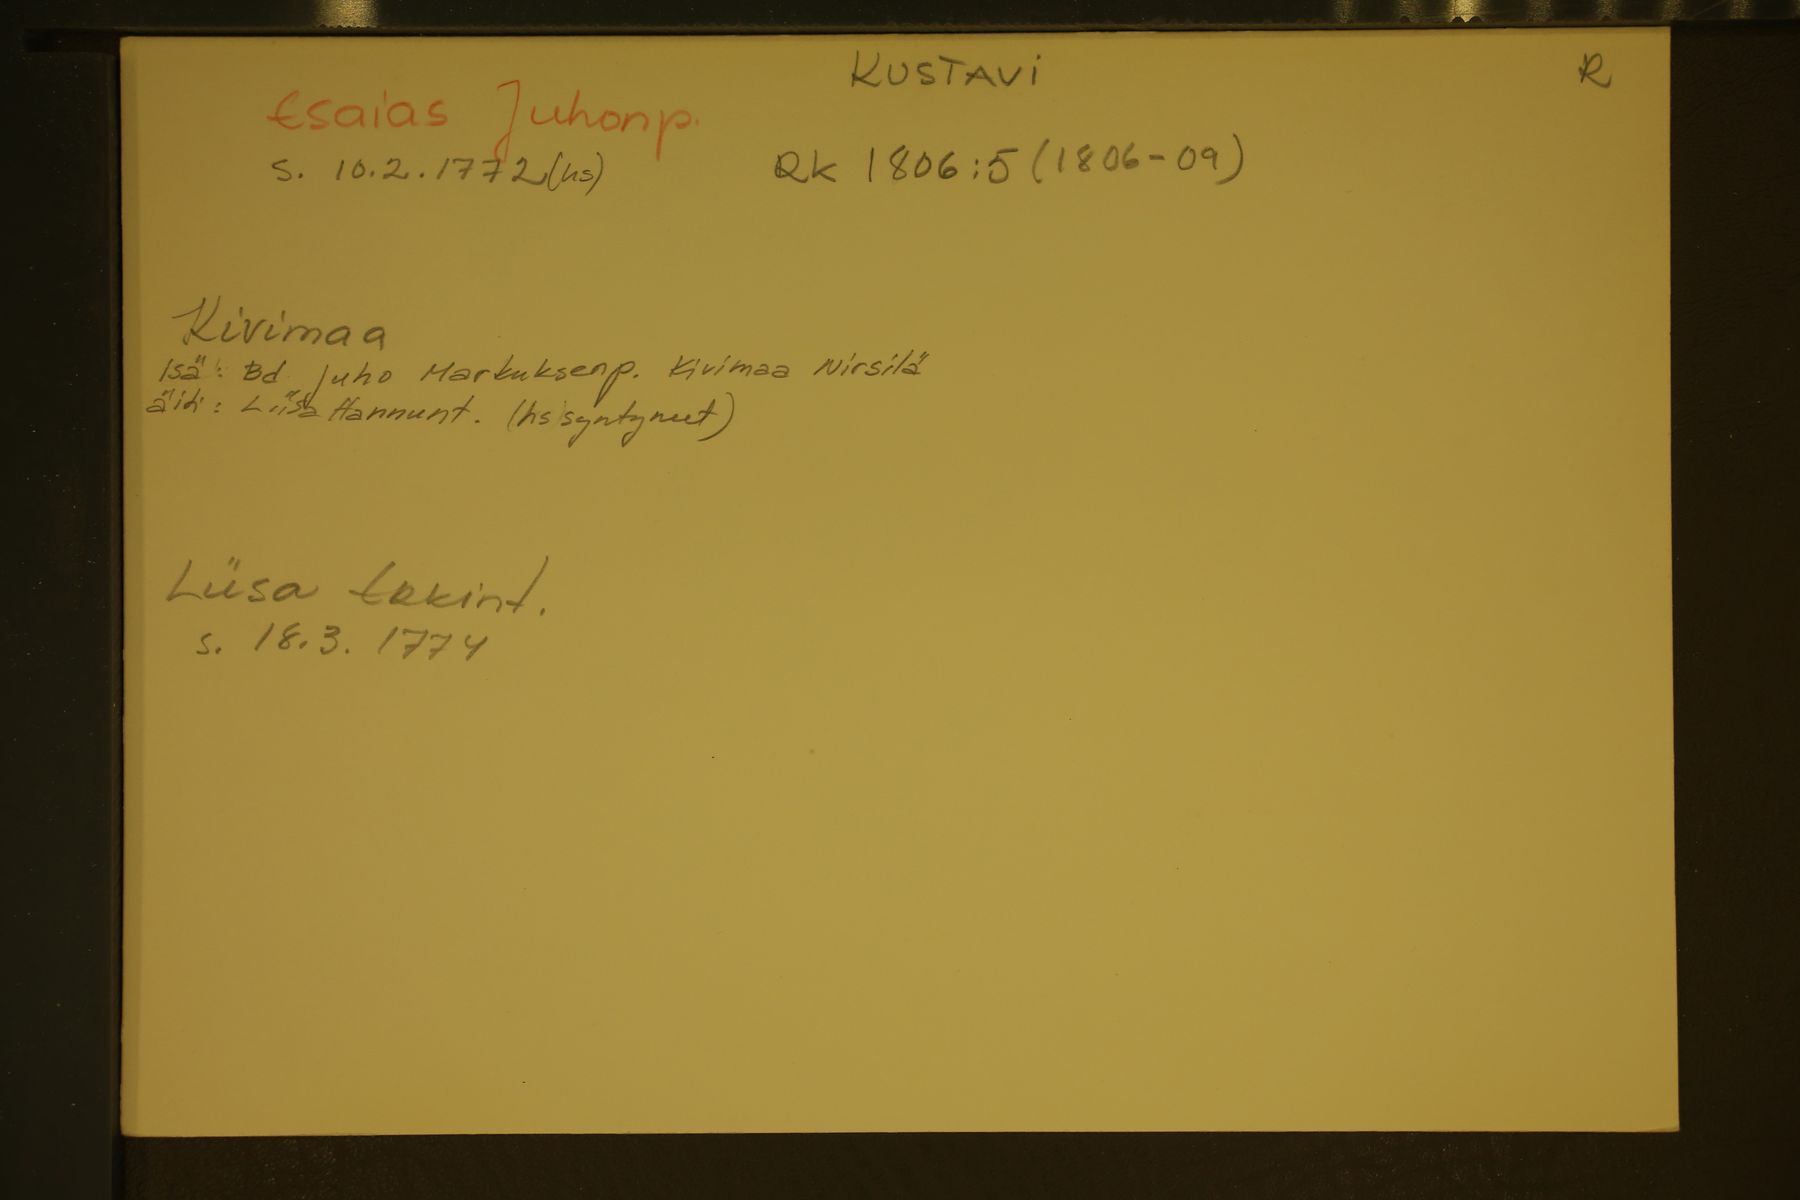 KUSTAVI
R
Esaias Juhonp.
s. 10.2.1772(hs)
RK 1806:5 (1806-09)
Kivimaa
isä: Bd Juho Markuksenp. Kivimaa Nirsilä
äiti: Liisa Hannunt. (hs syntyneet)
Liisa Erkint.
s. 18.3. 1774